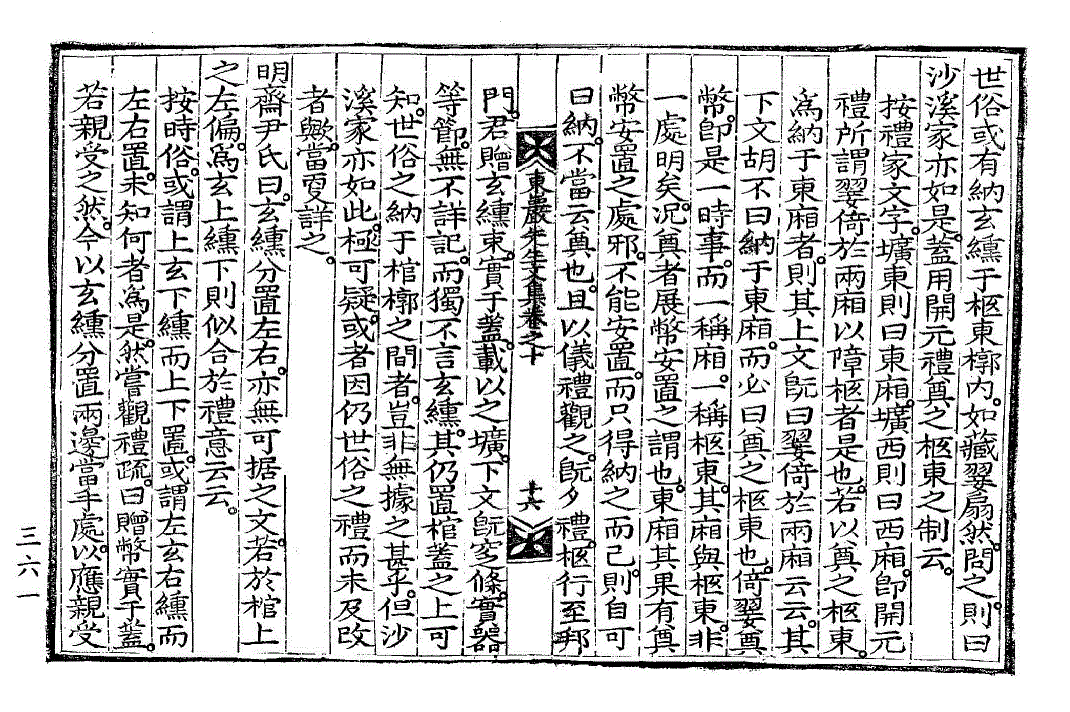 世俗或有納玄纁于柩東槨內。如藏翣扇然。問之。則曰
沙溪家亦如是。蓋用開元禮奠之柩東之制云。
按禮家文字。壙東則曰東廂。壙西則曰西廂。卽開元
禮所謂翣倚於兩廂以障柩者是也。若以奠之柩東。
爲納于東廂者。則其上文旣曰翣倚於兩廂云云。其
下文胡不曰納于東廂。而必曰奠之柩東也。倚翣奠
幣。卽是一時事。而一稱廂。一稱柩東。其廂與柩東。非
一處明矣。况奠者展幣安置之謂也。東廂其果有奠
幣安置之處邪。不能安置。而只得納之而已。則自可
曰納。不當云奠也。且以儀禮觀之。旣夕禮。柩行至邦
東巖先生文集卷之下
十六
門。君贈玄纁束。實于蓋。載以之壙。下文旣窆條。實器
等節。無不詳記。而獨不言玄纁。其仍置棺蓋之上可
知。世俗之納于棺槨之間者。豈非無據之甚乎。但沙
溪家亦如此。極可疑。或者因仍世俗之禮而未及改
者歟。當更詳之。
明齋尹氏曰。玄纁分置左右。亦無可据之文。若於棺上
之左偏。爲玄上纁下則似合於禮意云云。
按時俗。或謂上玄下纁而上下置。或謂左玄右纁而
左右置。未知何者爲是。然嘗觀禮疏。曰贈幣實于蓋。
若親受之然。今以玄纁分置兩邊當手處。以應親受
三六一